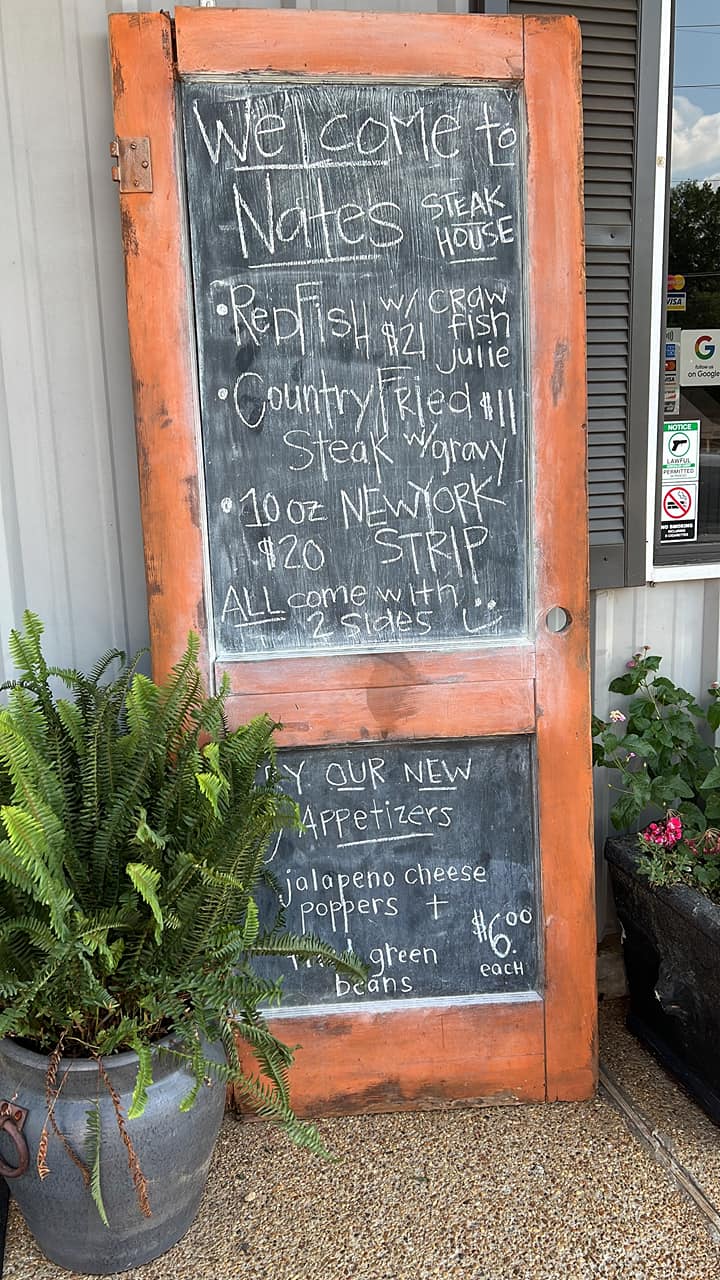 Welcome to
Nates STEAK HOUSE
• RedFisH w/ craw fish julie $21
• Country Fried $11
Steak w/gravy
• 10 oz NEW YORK
$20 STRIP
ALL come with
2 sides
OUR NEW
Appetizers
jalapeno cheese
poppers +
$6.00
green
each
beans
VISA
G
follow us
on Google
NOTICE
LAWFUL
PERMITTED
NO SMOKING